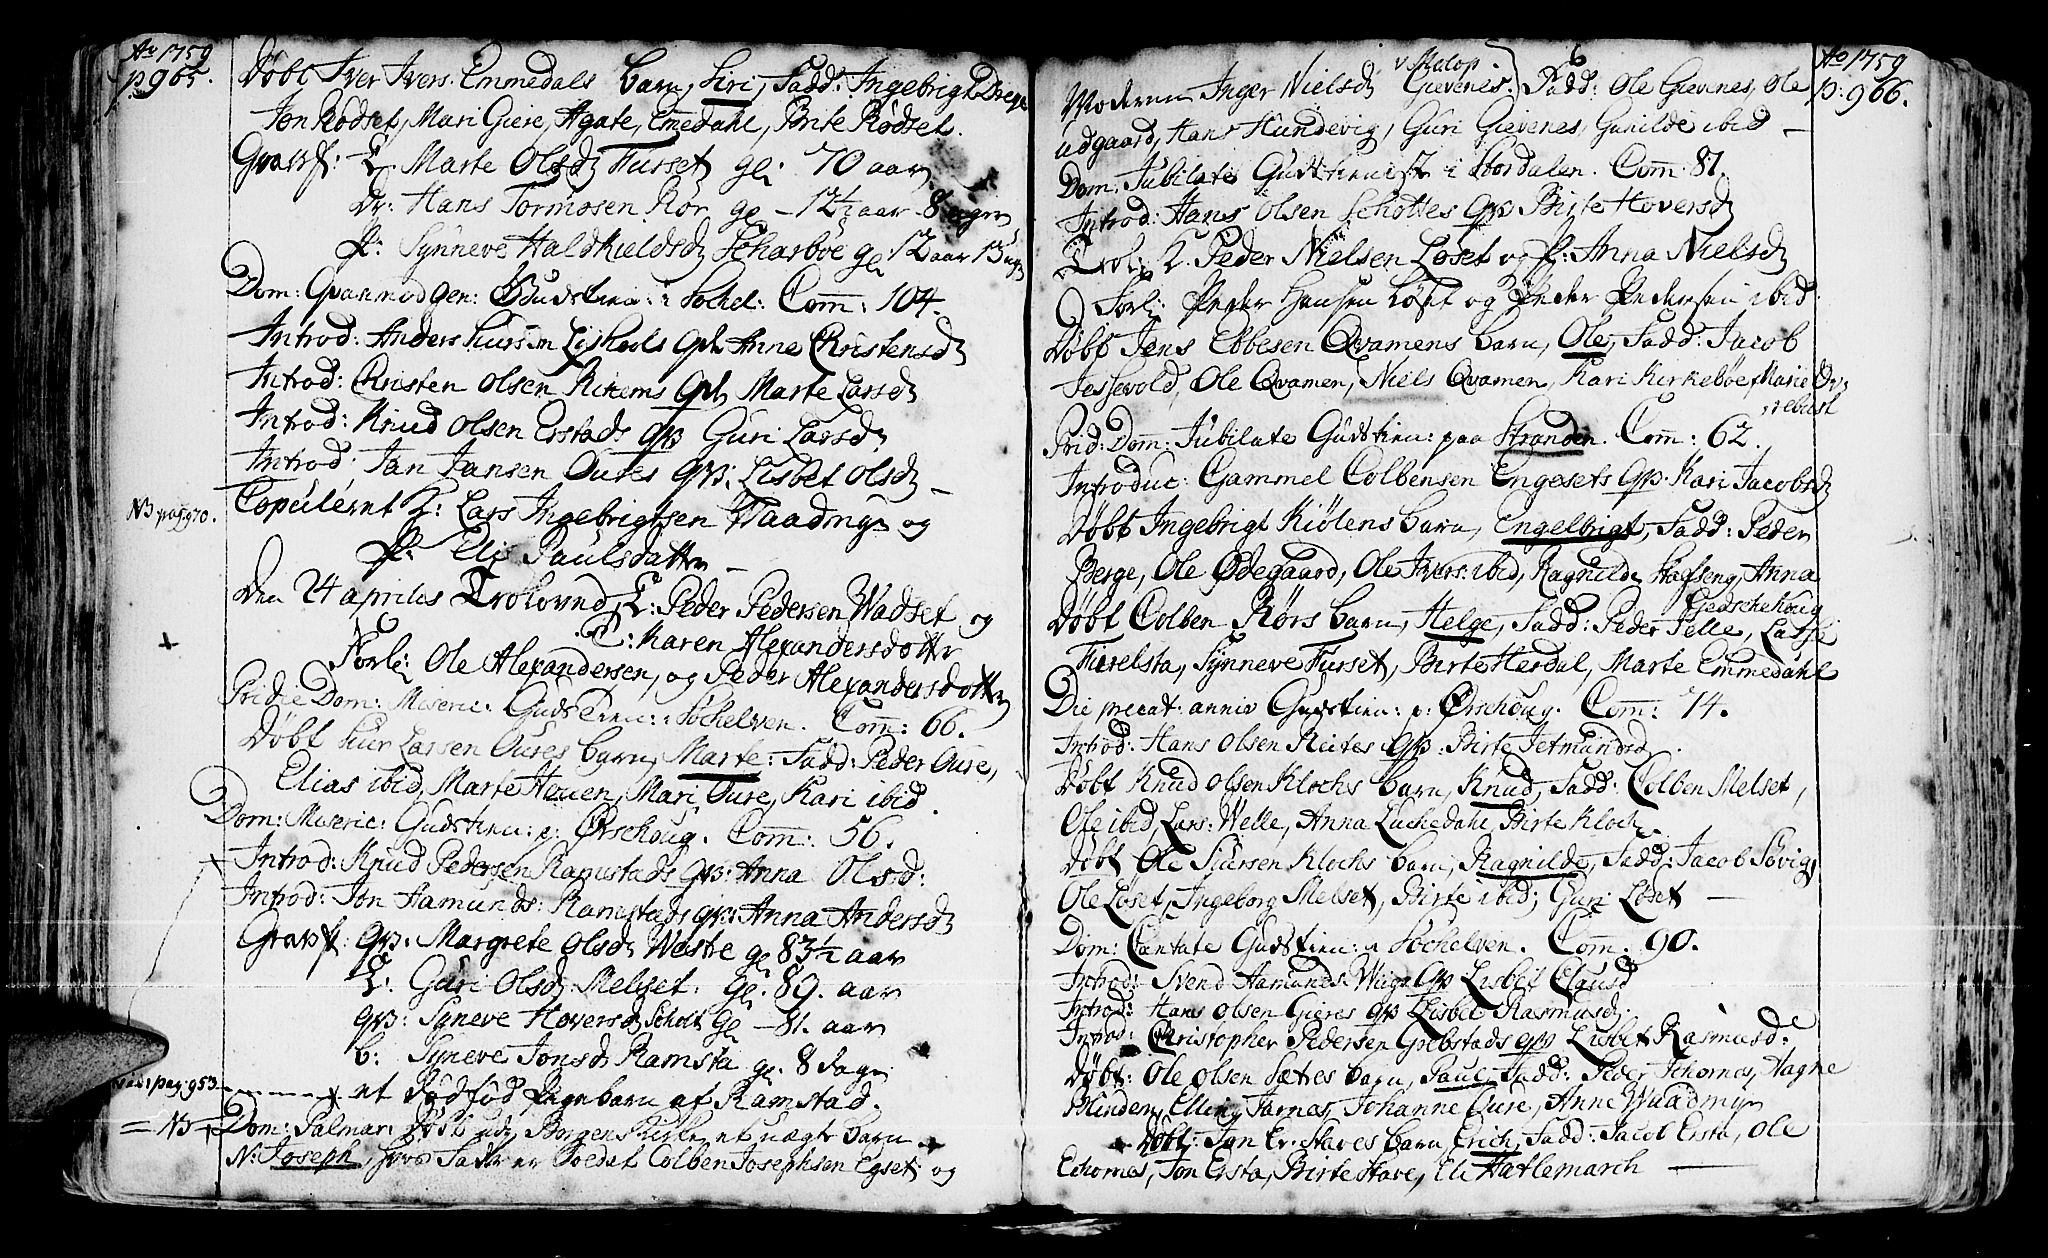 Ao 1759
p. 965.
Døbt Iver Ivers: Emmedals barn, Siri, Fadd: Ingebrigt Drege
Jon Rødset, Mari Giere, Agate Emedahl, Brite Rødset.
Gravf: E. Marte Olsd Furset gl: 70 aar
Dr: Hans Tormosen Rör gl – 12½ aar 8 ugr
P: Synneve Haldkieldsd Scharboe gl 12 aar 13 ugr
Dom: Qvasimodogen: Gudstien: i Sochel: Com: 104.
Introd: Anders Siursen Qvl Anne Christensd
Introd: Christen Olsen Rikems Qvl Marte Larsd
Introd: Knud Olsen Erstads qv Guri Larsd
Introd: Jan Jansen Oures qv: Lisbet Olsd –
NB pag: 970.
Copulernt E: Lars Ingebrigtsen Waadmyr og
P: Elis Paulsdatter –
Den 24 aprilis Trolovnd, E: Peder Pedersen Wadset og
E: Karen Alexandersdotter
Forl: Ole Alexandersen, og Peder Alexandersdotter
Pridie Dom: Miseric: Gudstien: i Sochelven. Com: 66.
Døbt Siur Larsen Oures barn, Marte: Fadd: Peder Oure,
Elias ibid, Marte Heuen, Mari Oure, Kari ibid.
Dom: Miseric: Gudstien: p: Ørschoug. Com: 56.
Introd: Knud Pedersen Ramstads qv: Anna Olsd:
Introd: Jon Hamunds: Ramstads qv: Anna Andersd
Gravf: qv: Margrete Olsd Westre gl 83½ aar
E: Guri Olsd Melset: gl. 89. aar
qv: Syneve Hoversd Scholt gl – 81. aar
b: Syneve Jonsd Ramsta gl. 8 dage
vid: pag: 953 et dødfød Pigebarn af Ramstad.
= NB Dom: Palmar: Døbt udi Borgens Kirke et uægte barn
N: Joseph, hvis Fader er Soldat Colben Josephsen Egset og
Ao 1759
p: 966.
Moderen Inger Nielsd Gievenes. Fadd: Ole Gievenes, Ole
udgaard, Hans Hundevig, Guri Gievenes, Gunilde ibid –
Dom: Jubilate Gudstieneste i Stordalen. Com: 81.
Introd: Hans Olsen Scholtes qv Birte Hoversd
Trol: E. Peder Nielsen Løset og P: Anna Nielsd
Forl: Peder Hansen Løset og Peder Pedersen ibid:
Døbt Jens Ebbesen Qvamens barn, Ole, Fadd: Jacob
Jessevold, Ole Qvamen, Niels Qvamen, Kari Kirkebøe, Marie
Prid: Dom: Jubilate Gudstien: paa Stranden. Com: 62.
Introduc: Gammel Colbensen Engesets qv: Kari Jacobsd
Døbt Ingebrigt Kiølens barn, Engelbrigt, Fadd: Peder
Berge, Ole Ødegaard, Ole Ivers: ibid, Ragnilde Hafseng, Anna
Gedschehoug
Døbt Colben Rørs barn, Helge, Fadd: Peder Pelle, Lasse
Fivelsta, Synneve Furset, Birte Herdal, Marte Emmedahl
Die precat: anniv Gudstien: p: Ørschoug. Com: 74.
Introd: Hans Olsen Reites qv: Birte Jetmundsd
Døbt Knud Olsen Klochs barn, Knud, Fadd: Colben Melset,
Ole ibid, Lars: Welle, Anna Luchedahl, Birte Kloch
Døbt Ole Siursen Klochs barn, Ragnilde, Fadd: Jacob Søvig,
Ole Løset, Ingeborg Melset, Birte ibid, Guri Løset –
Dom: Cantate Gudstien: i Sochelven. Com. 90.
Introd: Svend Hamunds: Wiigs qv Lisbet Clausd
Introd: Hans Olsen Gieres qv Lisbet Rasmusd.
Introd: Christopher Pedersen Grebstads qv Lisbet Rasmusd:
Døbt: Ole Olsen Sætres barn, Paul, Fadd: Peder Schornes, Hagne
Blinden, Elling Jarnes, Johanne Oure, Anne Waadmyr
Døbt: Jon Er: Staves barn, Erich, Fadd: Jacob Ersta, Ole
Echornes, Jon Ersta, Birte Stave, Eli Hatlemarch –